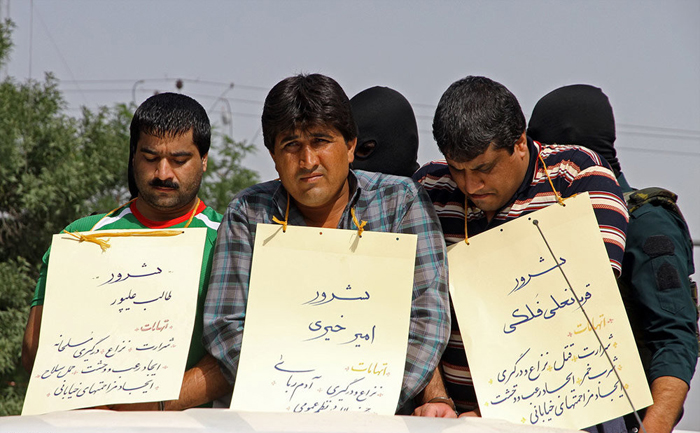 شرور
طالب علیپور
اتهامات
شرارت نزاع و درگیری مسلحانه
ایجاد رعب و وحشت حمل سلاح
ایجاد مزاحمتهای خیابانی
شرور
امیر خیری
اتهامات
نزاع و درگیری آدم ربایی
نظم عمومی
شرور
قربانعلی فلکی
اتهامات
شرارت قتل نزاع و درگیری
شرب خمر ایجاد رعب و وحشت
ایجاد مزاحمتهای خیابانی